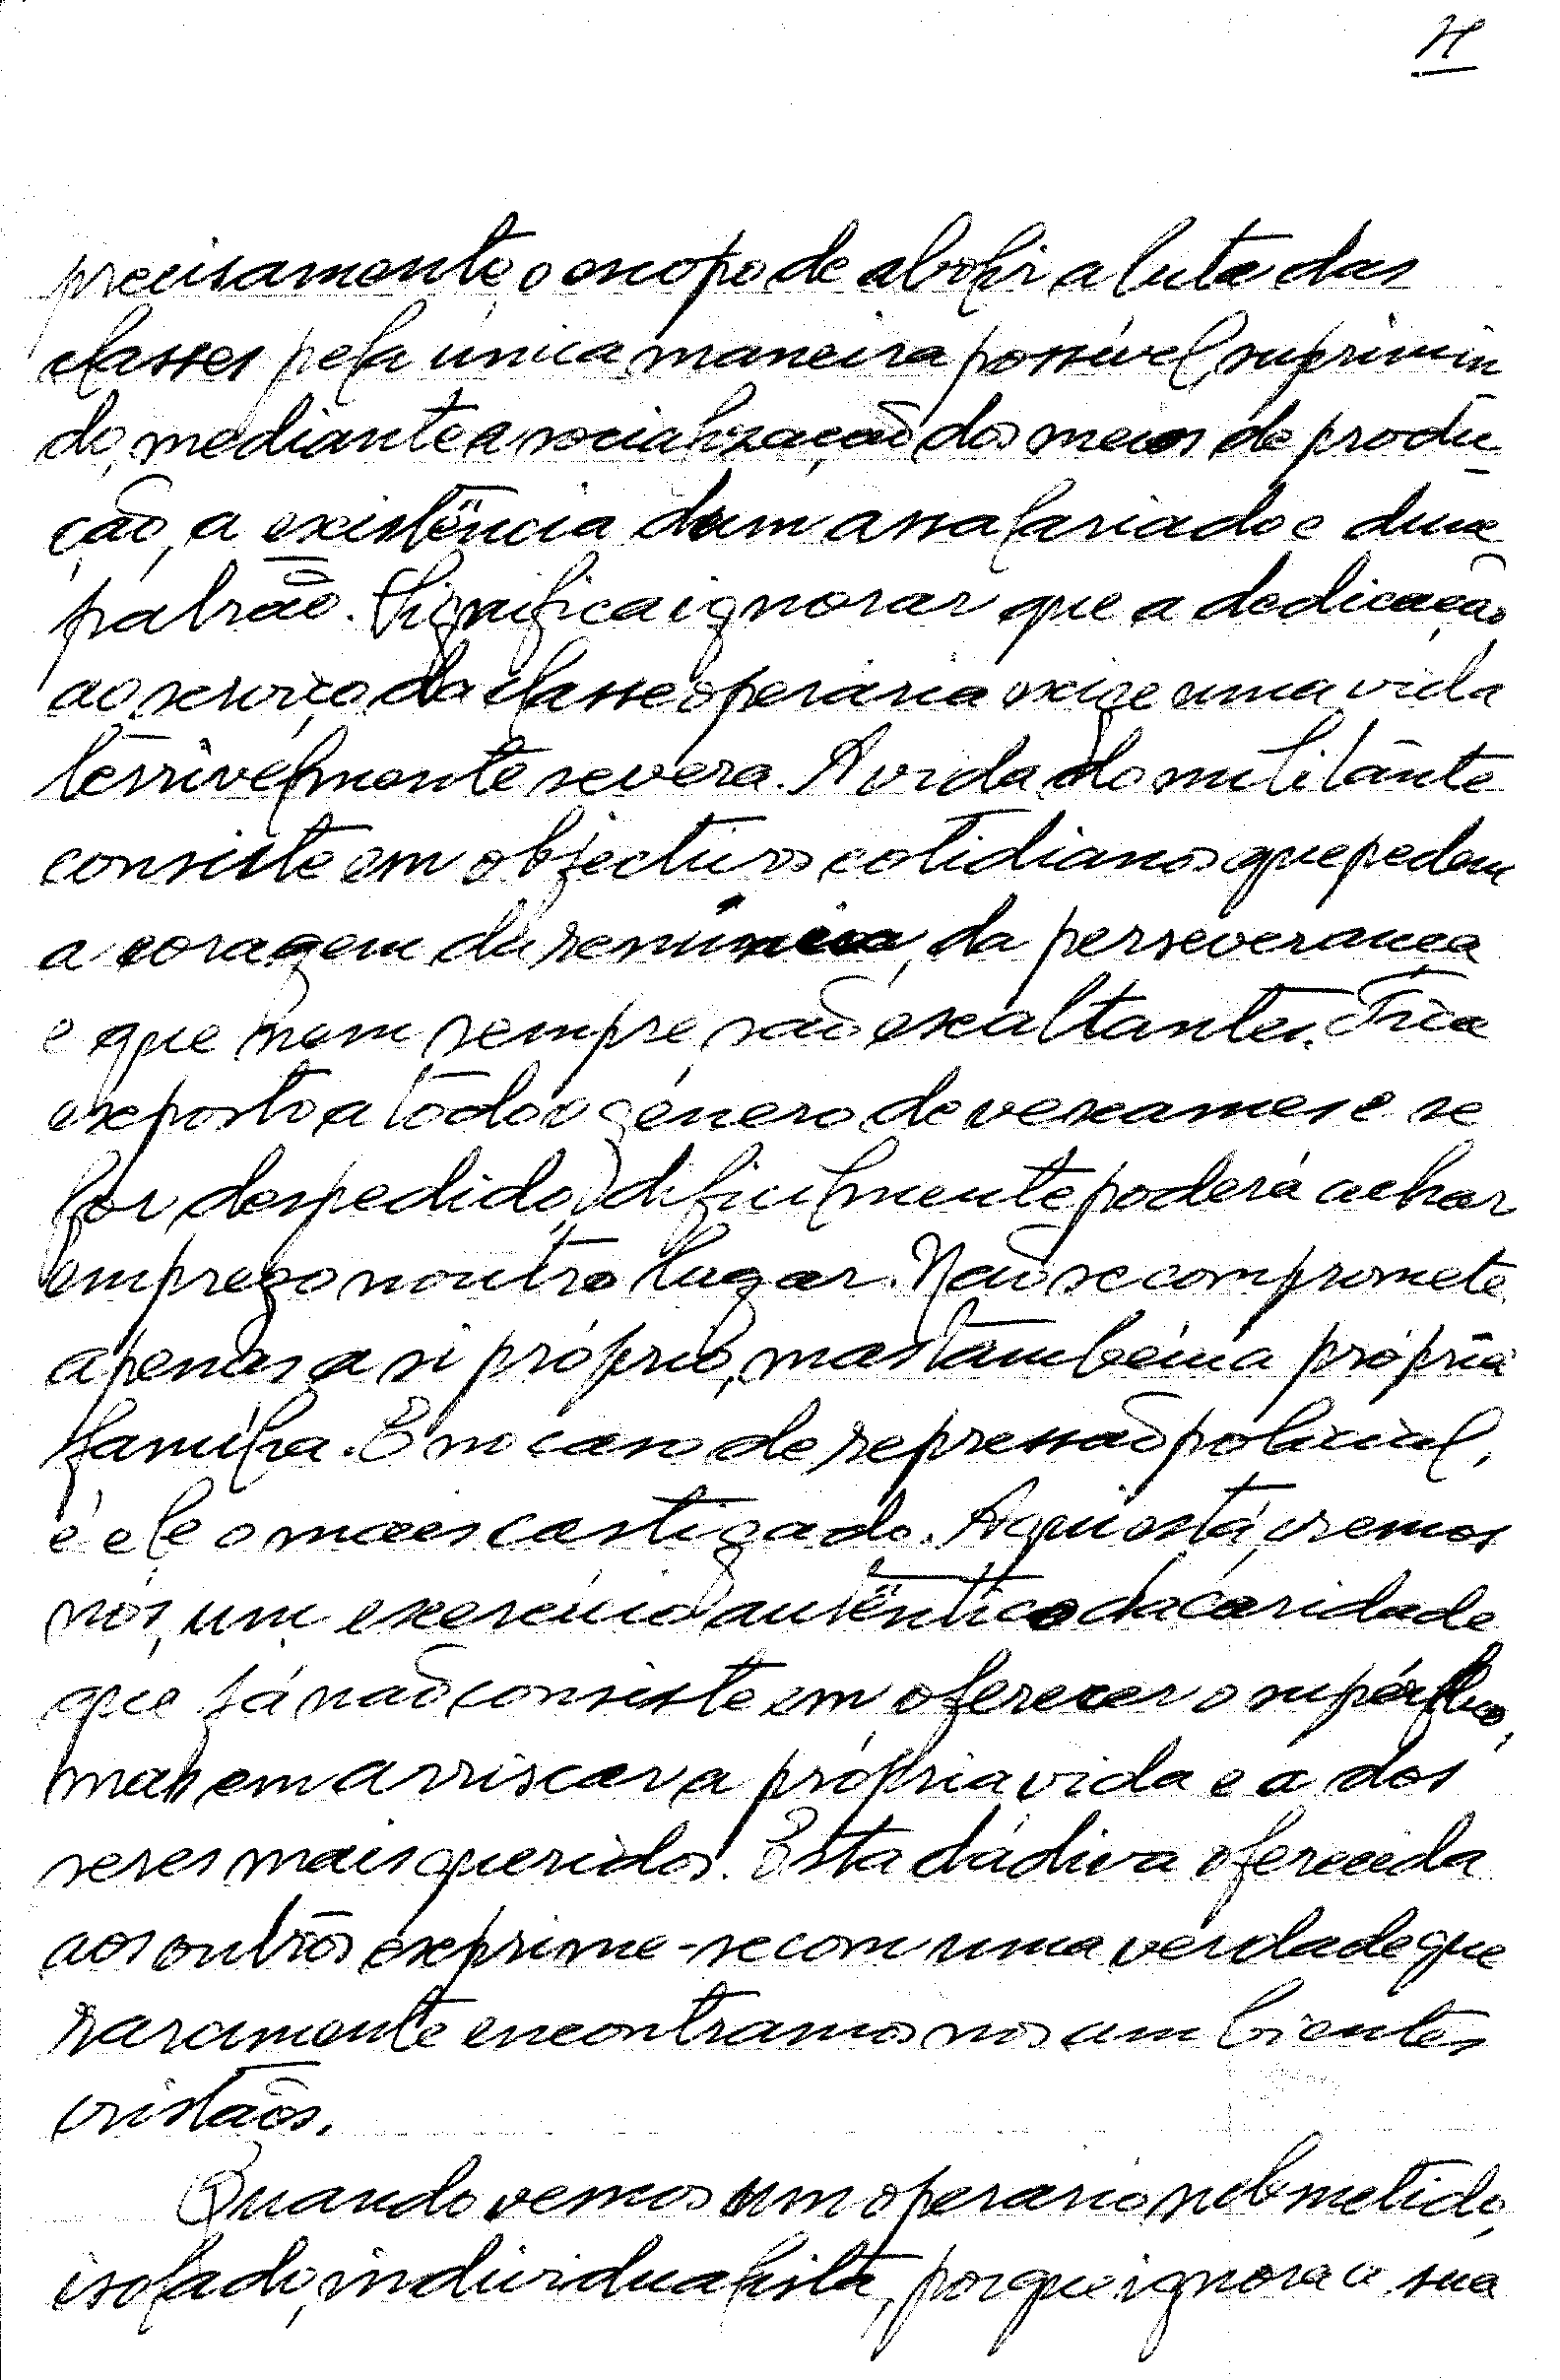 precisamente, o escopo de abolir a luta das
classes pela única maneira possível, suprimin
do, mediante a socialização dos meios de produ-
ção, a existência dum assalariado e dum
patrão. Significa ignorar que a dedicação
ao serviço da classe operária exige uma vida
terrivelmente severa. A vida do militante
consiste em objectivos cotidianos que pedem
a coragem da renúncia, da perseverança
e que nem sempre são exaltantes. Fica
exposto a todo o género de vexames e se
for despedido, dificilmente poderá achar
emprego noutro lugar. Não se compromete
apenas a si próprio, mas também a própria
família. E no caso de repressão policial,
é ele o mais castigado. Aqui está, cremos
nós, um exercício autêntico da caridade
que já não consiste em oferecer o supérfluo,
mas em arriscar a própria vida e a dos
seres mais queridos. Esta dádiva oferecida
aos outros exprime-se com uma verdade que
raramente encontramos nos ambientes
cristãos.
Quando vemos um operário submetido,
isolado, individualista, porque ignora a sua